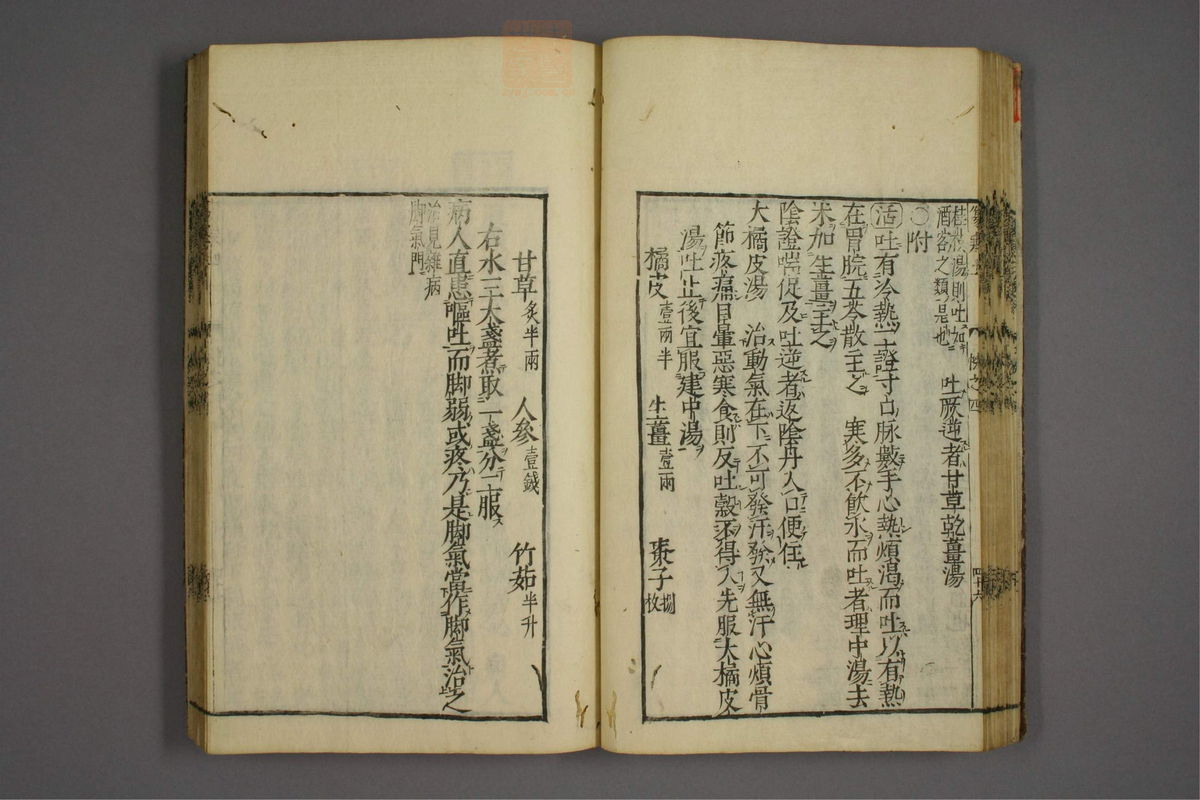 桂枝湯則吐如
酒客之類是也 吐厥逆者甘草乾薑湯
〇附
活吐有冷熱二證寸口脉數手心熱煩渴而吐以有熱
在胃脘五苓散主之 寒多不飲水而吐者理中湯去
朮加生薑主之
陰證喘促及吐逆者返陰丹入口便住
大橘皮湯 治動氣在下不可發汗發又無汗心煩骨
節疼痛目暈惡寒食則反吐穀不得入先服大橘皮
湯吐止後宜服建中湯
橘皮壹兩半 生薑壹兩 棗子捌枚
四十六
甘草炙半兩 人參壹錢 竹茹半升
右水三大盞煮取一盞分二服
病人直患嘔吐而脚弱或疼乃是脚氣當作脚氣治之
治見雜病
脚氣門